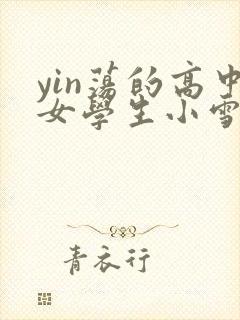 yin蕩的高中
女學生小雪
青衣行